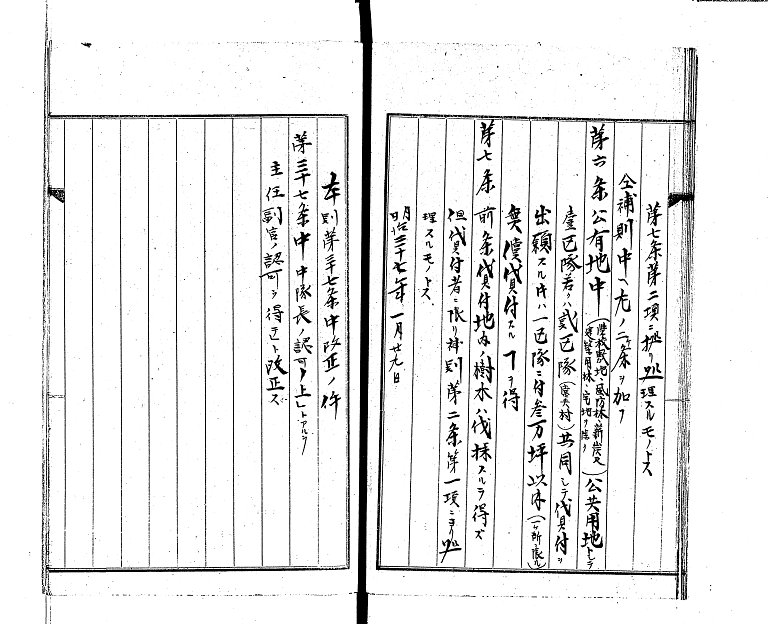 第七条第二項ニ拠リ処理スルモノトス
仝補則中ヘ左ノ二条ヲ加フ
第六条 公有地中(学校敷地、風防林、薪炭及建築用林、宅地ヲ除ク)公共用地トシテ
壹区隊若クハ貳区隊(農夫村)共同シテ貸付ヲ
出願スル時ハ一区隊ニ付叁万坪以内(一ヶ所ニ限ル)
無償貸付スルヿヲ得
第七条 前条貸付地内ノ樹木ハ伐採スルヲ得ズ
但貸付者ニ限リ補則第二条第一項ニヨリ処
理スルモノトス
明治三十七年一月廿九日
本則第三十七条中改正ノ件
第三十七条中 中隊長ノ認可ノ上トアルヲ
主任副官ノ認可ヲ得テト改正ス